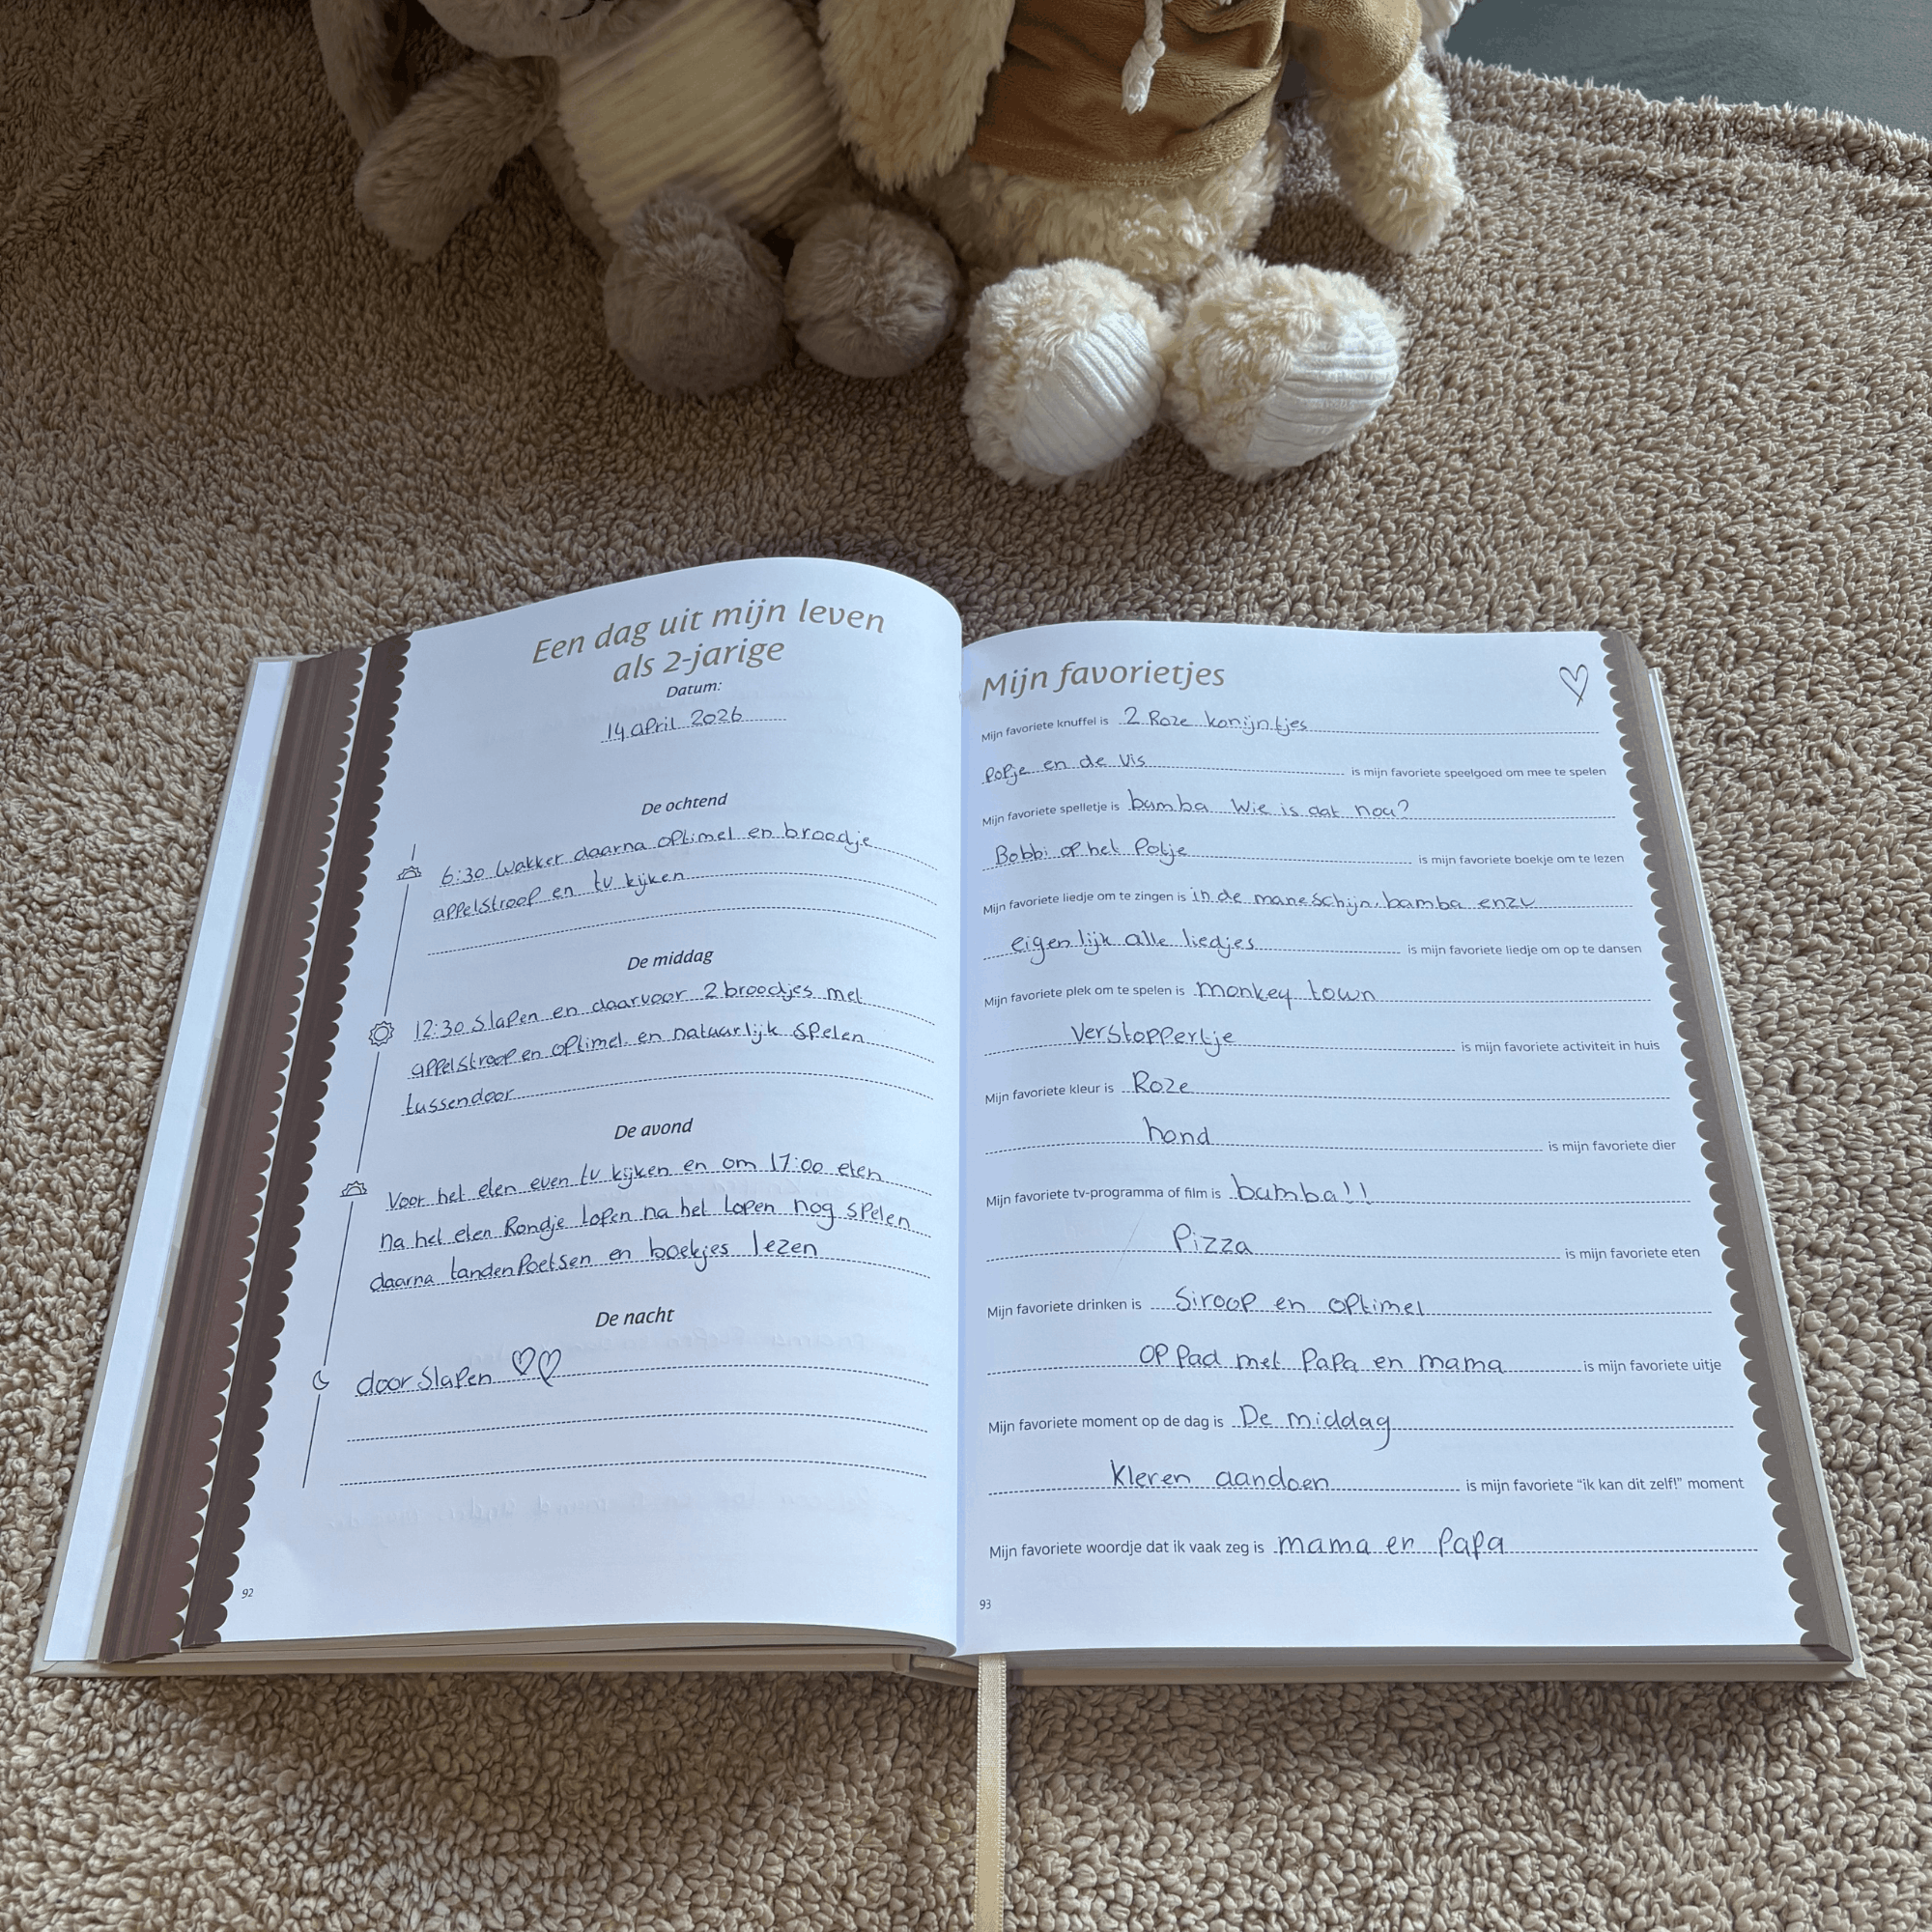 Een dag uit mijn leven
als 2-jarige
Datum:
14 april 2026
De ochtend
6:30 wakker daarna optimel en broodje
appelstroop en tv kijken
De middag
12:30 slapen en daarvoor 2 broodjes met
appelstroop en optimel en natuurlijk spelen
tussendoor
De avond
Voor het eten even tv kijken en om 17:00 eten
na het eten Rondje lopen na het lopen nog spelen
daarna tandenpoetsen en boekjes lezen
De nacht
doorslapen ♡♡
92
Mijn favorietjes
Mijn favoriete knuffel is 2 Roze konijntjes
popje en de vis is mijn favoriete speelgoed om mee te spelen
Mijn favoriete spelletje is bumba wie is dat nou?
Bobbi op het Potje is mijn favoriete boekje om te lezen
Mijn favoriete liedje om te zingen is in de maneschijn, bamba enzv
eigenlijk alle liedjes is mijn favoriete liedje om op te dansen
Mijn favoriete plek om te spelen is monkey town
Verstoppertje is mijn favoriete activiteit in huis
Mijn favoriete kleur is Roze
hond is mijn favoriete dier
Mijn favoriete tv-programma of film is bumba!!
Pizza is mijn favoriete eten
Mijn favoriete drinken is Siroop en optimel
op pad met Papa en mama is mijn favoriete uitje
Mijn favoriete moment op de dag is De middag
Kleren aandoen is mijn favoriete "ik kan dit zelf!" moment
Mijn favoriete woordje dat ik vaak zeg is mama en Papa
93